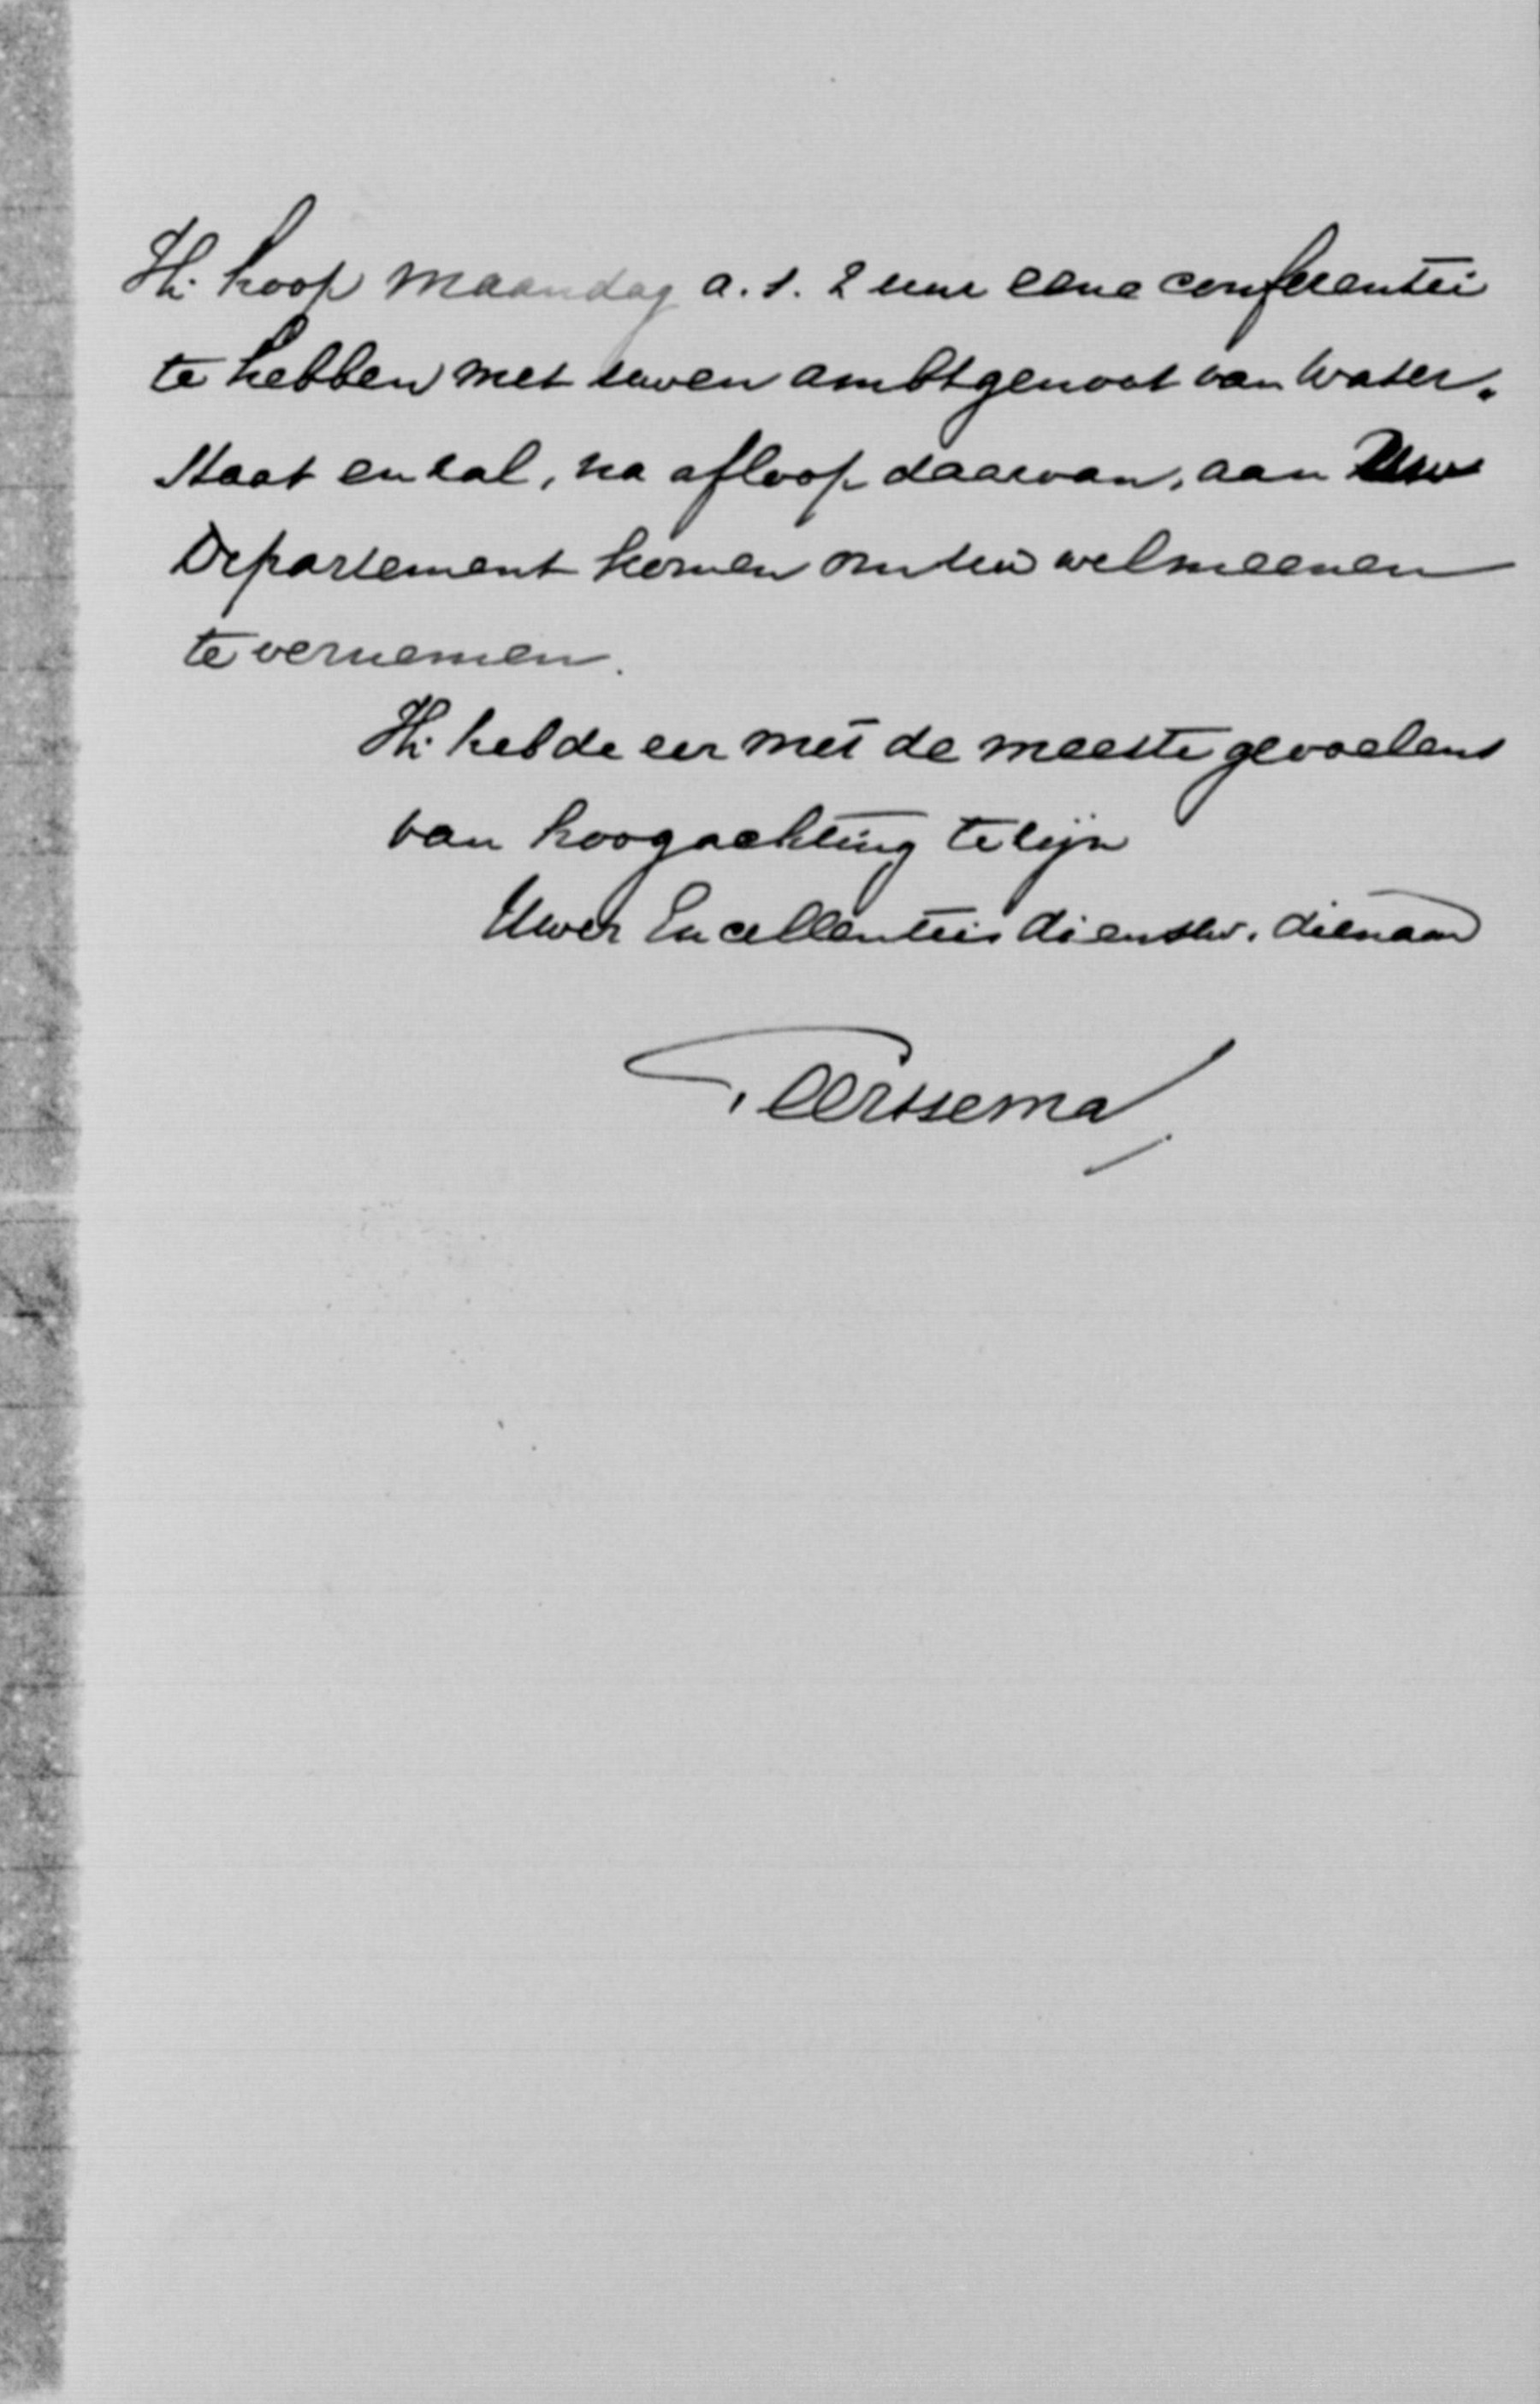 Ik hoop maandag a.s. 2 uur eene conferentie
te hebben met uwen ambtgenoot van Water-
staat en zal, na afloop daarvan, aan Uw
Departement komen om uw welmeenen
te vernemen.
Ik heb de eer met de meeste gevoelens
van hoogachting te zijn
Uwer Excellentie's dienstw. dienaar